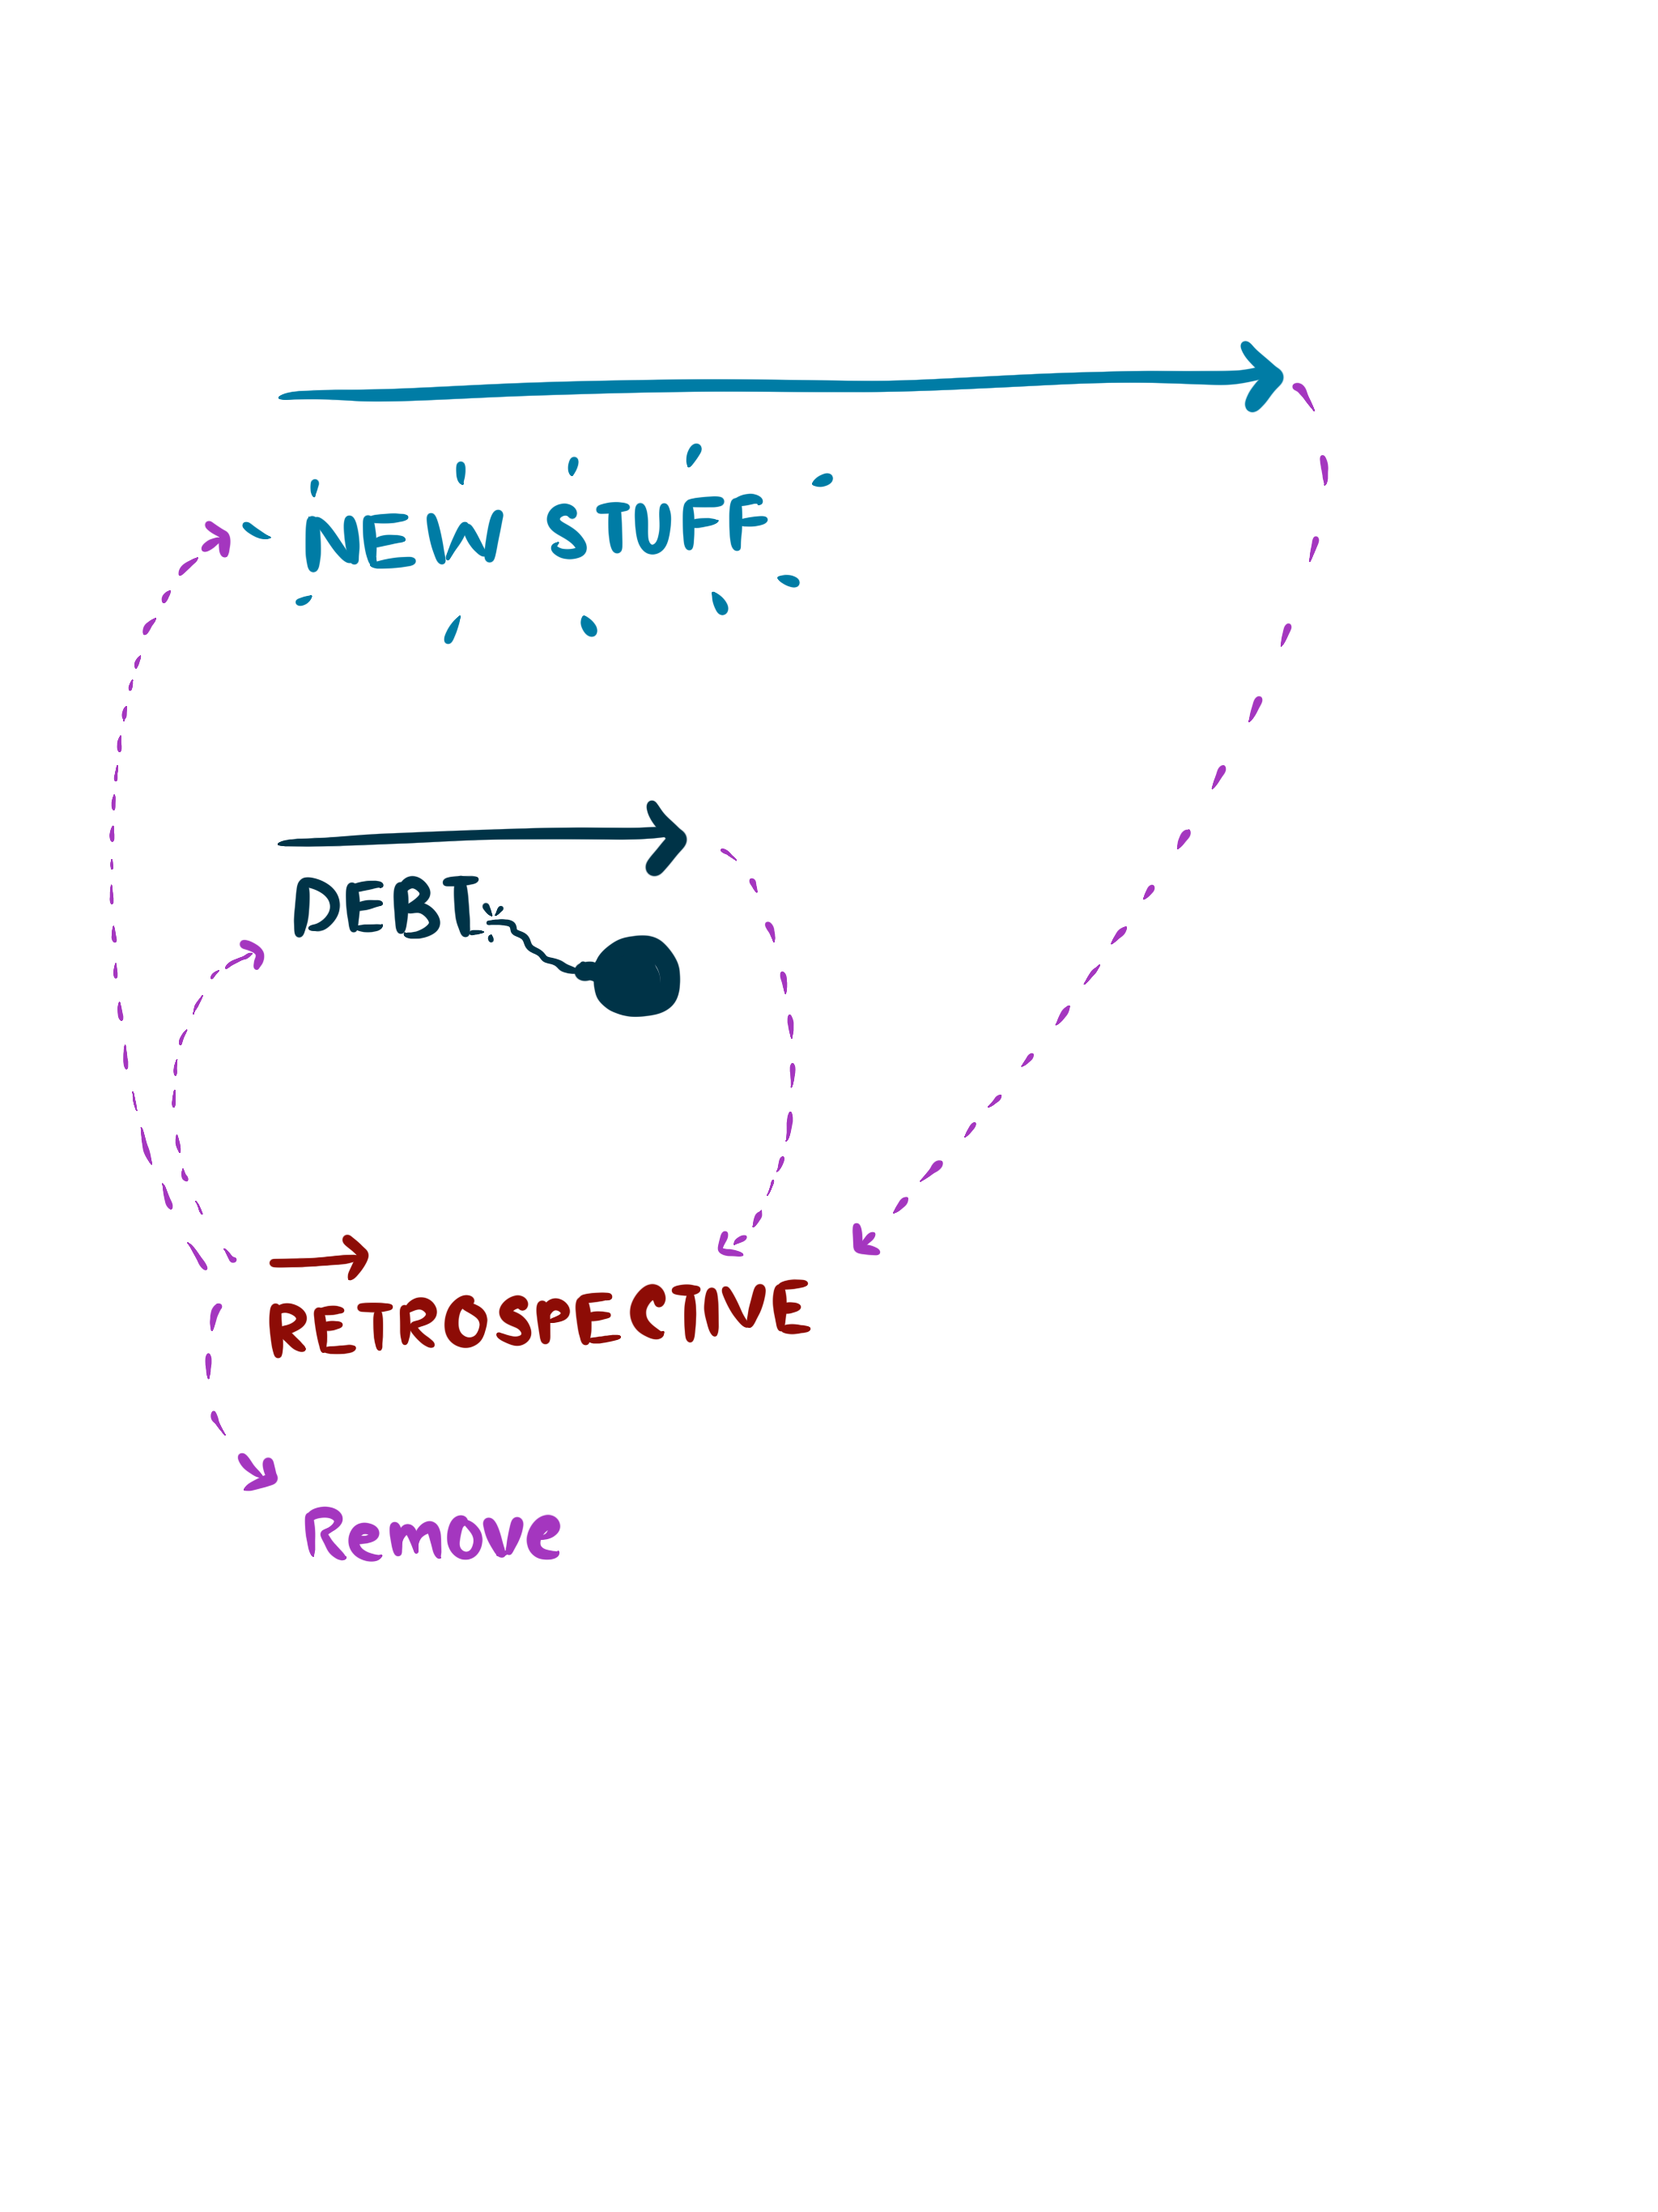 NEW STUFF
DEBT
RETROSPECTIVE
Remove